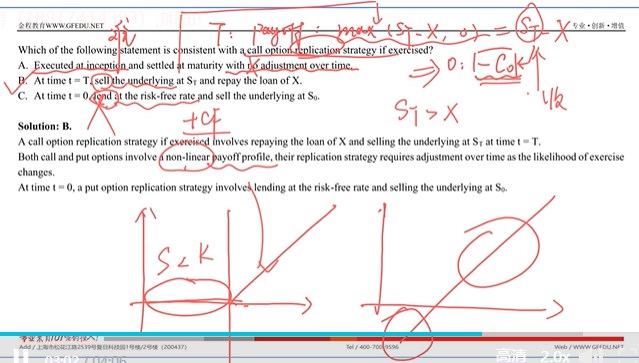 金程教育WWW.GFEDU.NET
专业·创新·增值
T: Payoff: max(S_T - X, 0) = S_T - X
Which of the following statement is consistent with a call option replication strategy if exercised?
A. Executed at inception and settled at maturity with no adjustment over time.
B. At time t = T, sell the underlying at S_T and repay the loan of X.
C. At time t = 0, lend at the risk-free rate and sell the underlying at S_0.
S_T > X
+CF
Solution: B.
A call option replication strategy if exercised involves repaying the loan of X and selling the underlying at S_T at time t = T.
Both call and put options involve a non-linear payoff profile, their replication strategy requires adjustment over time as the likelihood of exercise
changes.
At time t = 0, a put option replication strategy involves lending at the risk-free rate and selling the underlying at S_0.
S < K
Add / 上海市松花江路2539号复旦科技园1号楼/2号楼 (200437)
Tel / 400-700-9596
Web / WWW.GFEDU.NET
03:02 / 04:06
高清
2.0x